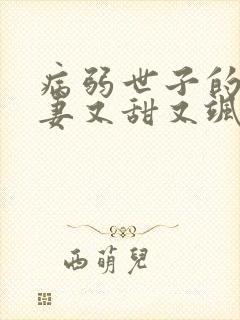 病弱世子的
妻又甜又飒
西萌兒